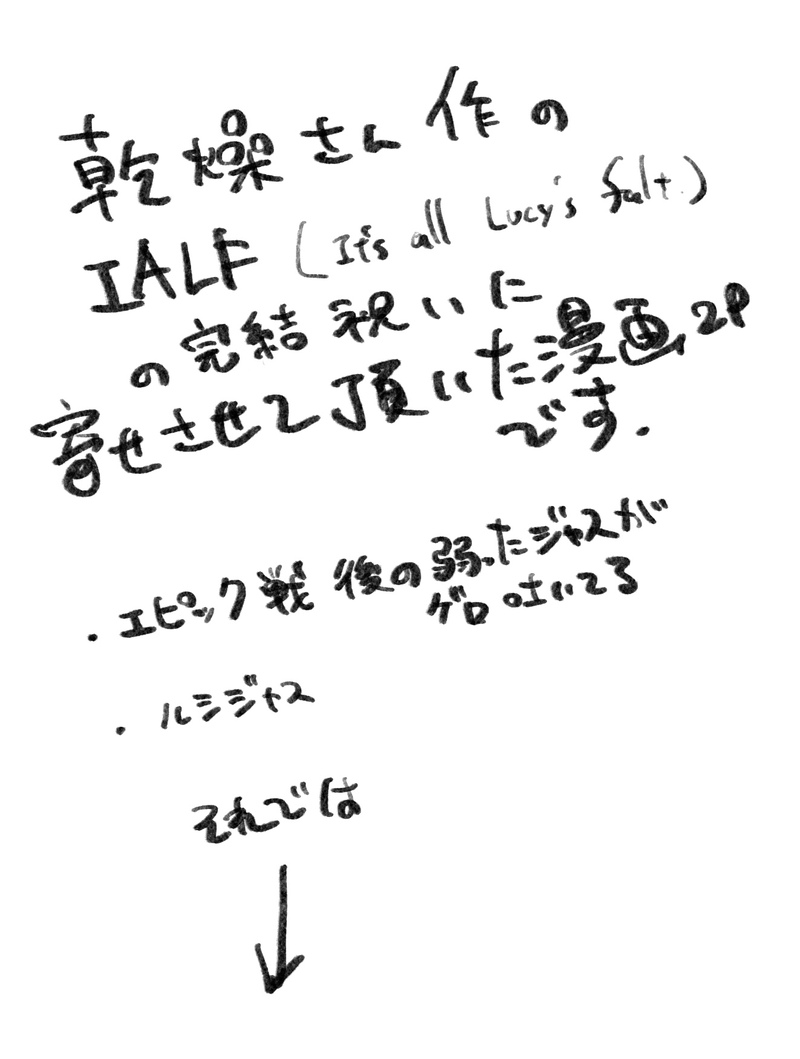 乾燥さん作の
IALF (It's all Lucy's falt.)
の完結祝いに
寄せさせて頂いた漫画2P
です.
・エピック戦後の弱ったジャスが
ゲロ吐いてる
・ルシジャス
それでは